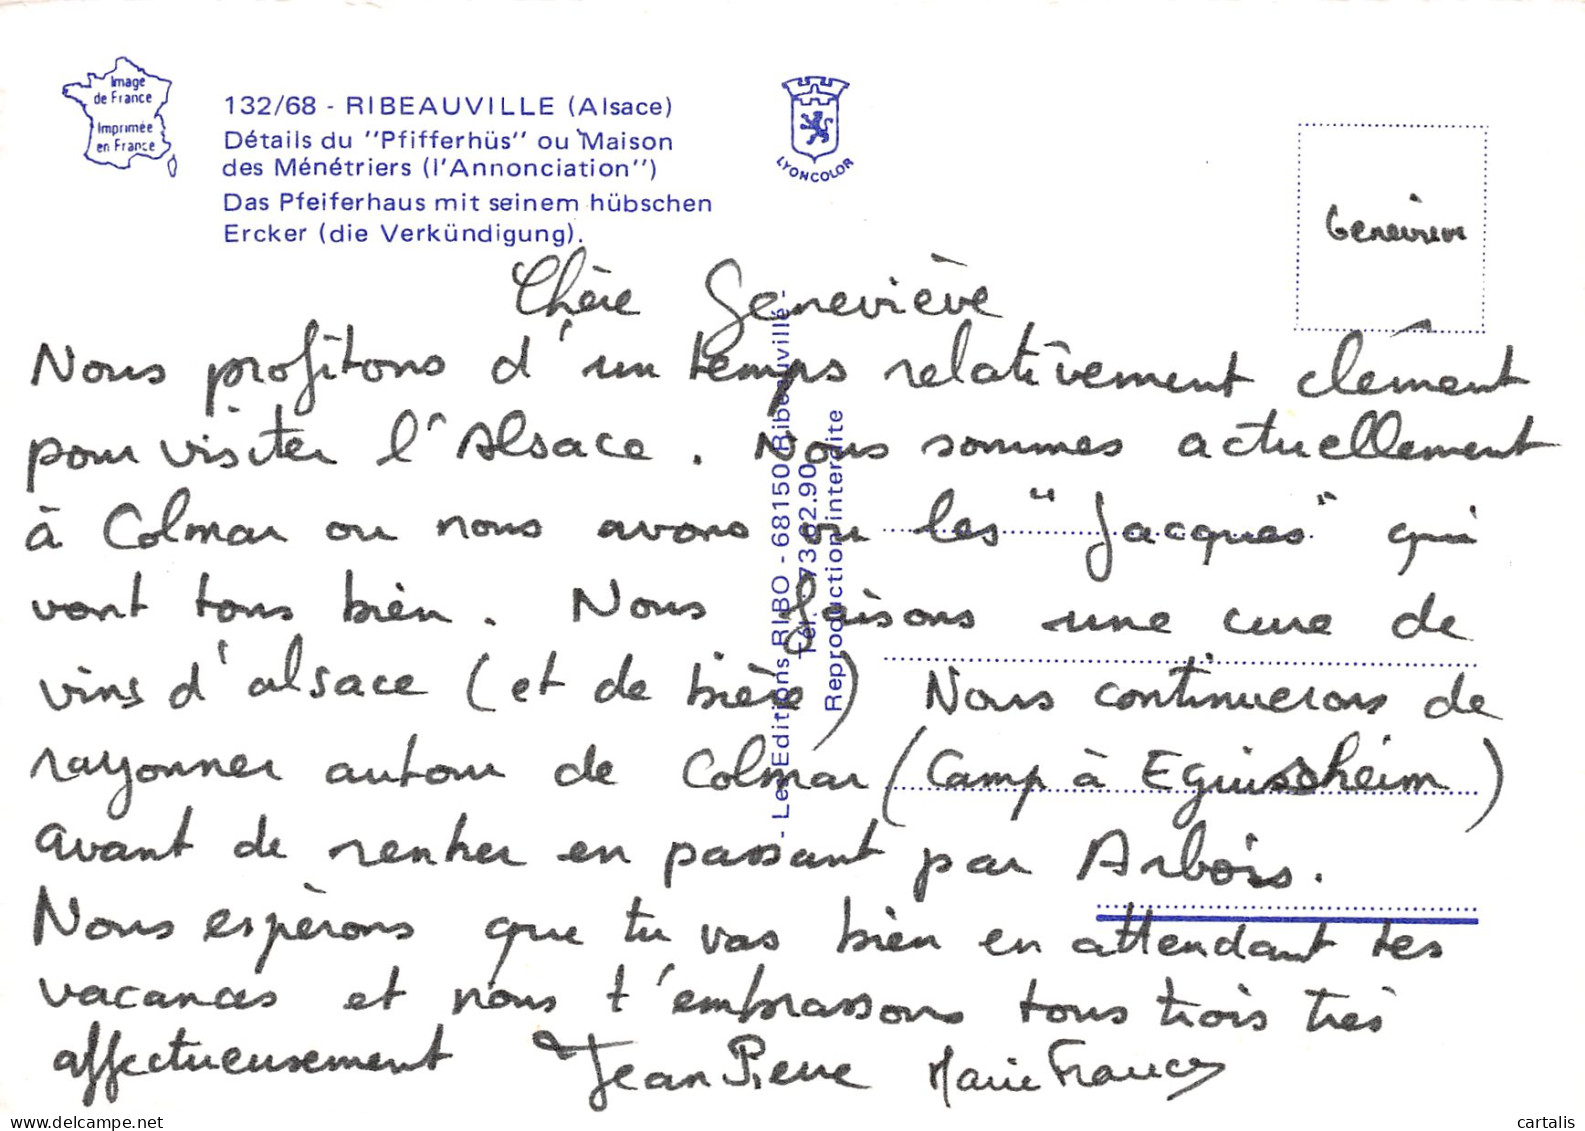 Image
de France
Imprimée
en France
132/68 - RIBEAUVILLE (Alsace)
Détails du "Pfifferhüs" ou Maison
des Ménétriers (l'Annonciation")
Das Pfeiferhaus mit seinem hübschen
Ercker (die Verkündigung).
LYONCOLOR
Geneviève
Chère Geneviève
Nous profitons d'un temps relativement clément
pour visiter l'Alsace. Nous sommes actuellement
à Colmar ou nous avons vu les "Jacques" qui
vont tous bien. Nous faisons une cure de
vins d'alsace (et de bière) Nous continuerons de
rayonner autour de Colmar (Camp à Eguissheim)
avant de rentrer en passant par Arbois.
Nous espérons que tu vas bien en attendant tes
vacances et nous t'embrassons tous trois très
affectueusement Jean Pierre Marie France
- Les Editions RIBO - 68150 Ribeauvillé -
Tél. 73.62.90
Reproduction interdite
delcampe.net
cartalis